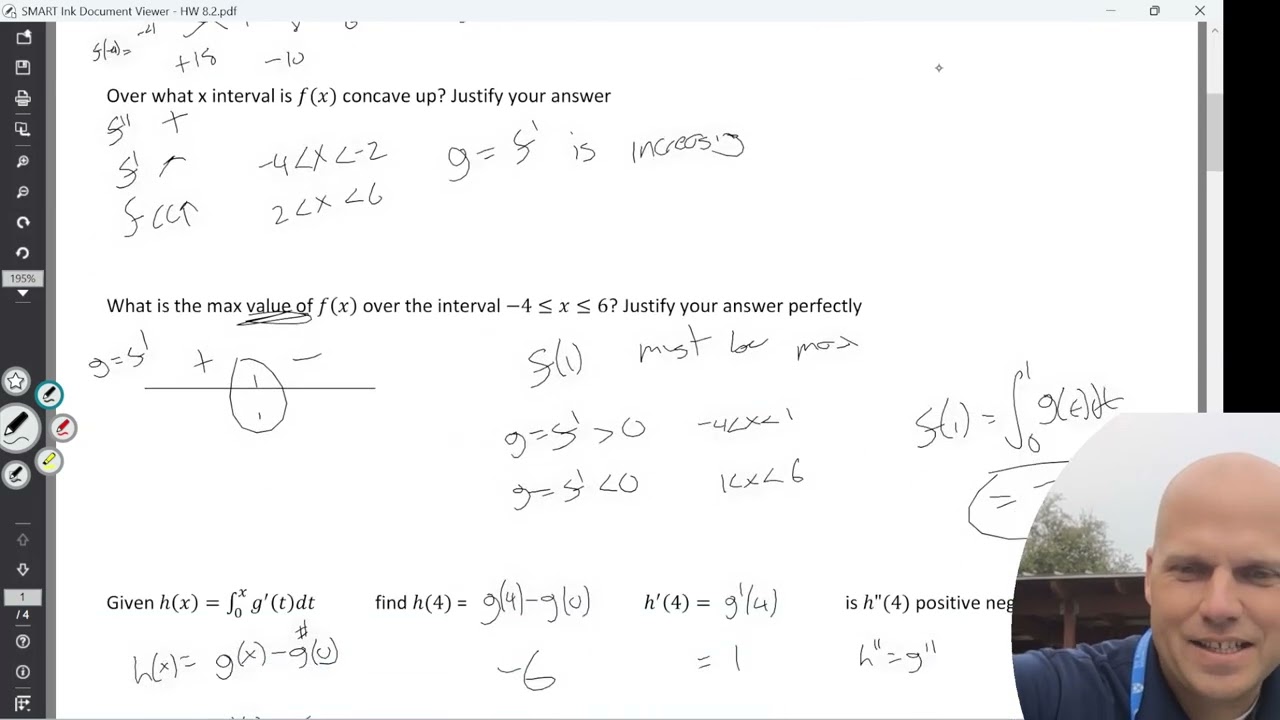 SMART Ink Document Viewer - HW 8.2.pdf
+18 -10
Over what x interval is f(x) concave up? Justify your answer
f'' +
f' ↗ -4<x<-2 g = f' is increasing
f CC↑ 2<x<6
What is the max value of f(x) over the interval −4 ≤ x ≤ 6? Justify your answer perfectly
g=f' + − f(1) must be max
1
g=f'>0 -4<x<1 f(1) = ∫₀¹ g(t)dt
g=f'<0 1<x<6 =
Given h(x) = ∫₀ˣ g′(t)dt find h(4) = g(4)−g(0) h′(4) = g'(4) is h"(4) positive neg
#
h(x)= g(x)−g(0) -6 = 1 h"=g"
195%
1
/ 4